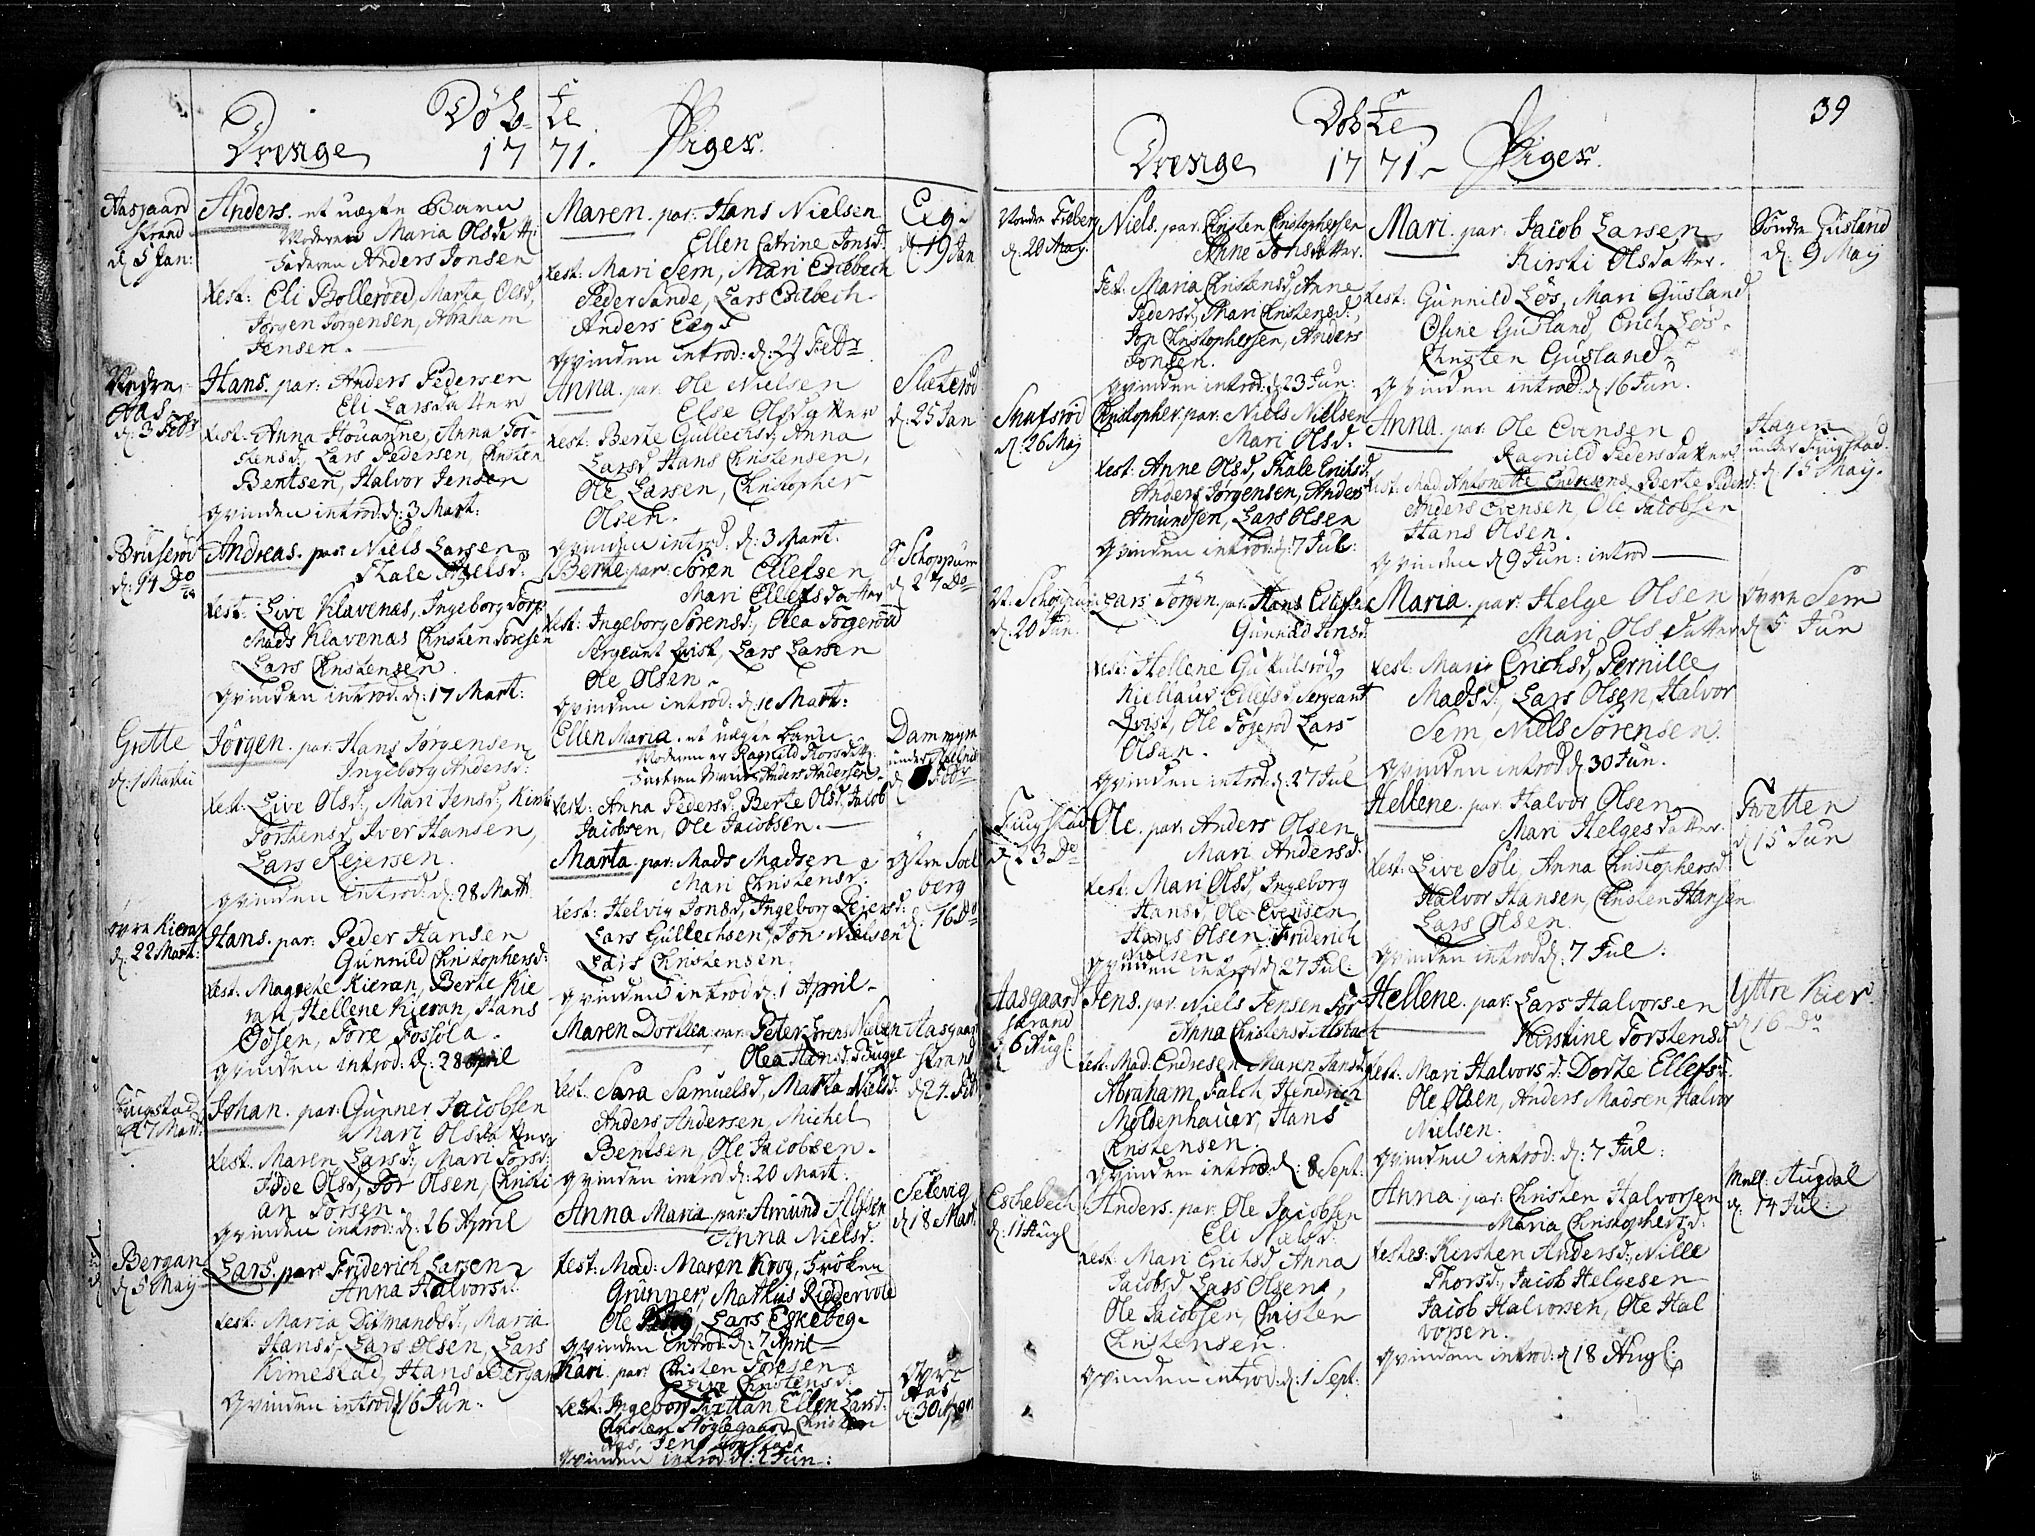 Døb- te
Drenge 17 71. Piger.
Aasgaard
strand
d. 5 Jan:
Anders. et uægte Barn
Moderen Maria Olsdatter
Faderen Anders Jonsen
test: Eli Bollerød, Marta Olsd,
Jørgen Jørgensen, Abraham
Jensen.
Vestre
Aas
d. 3 Febr
Hans. par: Anders Pedersen
Eli Larsdatter
test: Anna Anna Tor-
stensd, Lars Pedersen, Christen
Bentsen, Halvor Jensen
qvinden introd: d: 3 Mart:
Bruserød
d: 14 Do
Andreas. par: Niels Larsen
Thale
test: Live Klavenæs, Ingeborg Torp
Mads Klavenæs Christen Toresen
Lars Christensen
qvinden introd: d: 17 Mart:
Gutte
d. 1 Martii
Jørgen. par: Hans Jørgensen
Ingeborg Andersd:
test: Live Olsd, Mari Jensd,
Torstensd, Iver Hansen,
Lars Rejersen.
qvinden introd: d: 28 Mart
øvre Kieran
d. 22 Mart:
Hans. par: Peder Hansen
Gunnild Christophersd:
test. Magrete Kieran, Berte Kie
ran Hellene Kieran, Hans
Olsen, Tore Fossola.
qvinden introd: d: 28 April
Fuugstad
d 27 Mart:
Johan. par: Gunner Jacobsen
Mari Olsdatter
test. Maren Larsd:, Mari Torsd:
Olsd, Tor Olsen, Christi
an Torsen.
qvinden introd: d: 26 April
Bergan
d 5 Maij
Lars. par: Friderich Larsen
Anna Halvorsd:
test: Maria Maria
Hansd, Lars Olsen, Lars
Kimestad, Hans Bergan
qvinden introd 16 Jun:
Maren. par: Hans Nielsen
Ellen Catrine Jonsd:
test: Mari Sem, Mari
Peder Sande, Lars
Anders Eeg
qvinden introd: d: 24 Febr
Eeg
d: 19 Jan
Anna. par: Ole Nielsen
Else Olsdatter
test: Berte Gullechsd, Anna
Larsd Hans Christensen,
Ole Larsen, Christopher
Olsen.
qvinden introd. d: 3 Mart.
Slæterød
d: 25 Jan
Berte. par: Søren Ellefsen
Mari Ellefsdatter
test: Ingeborg Sørensd, Olea Togerød
Sergeant Qvist, Lars Larsen
Ole Olsen.
qvinden introd: d: 10 Mart:
Schoppum
d 27 Do
Ellen Maria. et uægte barn
Moderen er Ragnild Thorsd
Anders Andersen
test: Anna Pedersd: Berte Olsd, Jacob
Jacobsen, Ole Jacobsen.
Dammyen
under
d Febr
Marta. par: Mads Madsen
Mari Christensd:
test: Helvig Jonsd, Ingeborg Rejersd:
Lars Gullechsen, Jon Nielsen
Lars Christensen.
qvinden introd d: 1 April
østre Soel
berg
d. 16 Do
Maren Dorthea. par: Peter Nielsen
Olea Hansd Bugge
test. Sara Samuelsd, Marta Nielsd:
Anders Andersen, Michel
Bentsen, Ole Jacobsen.
qvinden introd d: 20 Mart:
Aasgaard
strand
d 24 Feb
Anna Maria. par: Amund
Anna Nielsd:
test: Mad: Maren Krog, Frøken
Grunner, Mathias Riddervold
Ole Lars Eskebeg.
qvinden introd. d: 7 April
Selevig
d 18 Mart
Kari. par: Christen Toresen
Live Christensd:
test: Ingeborg Ellen Larsd:
Christen Christen
Aas, Jens
qvinden introd. d: 2 Jun:
øvre
Aas
d: 30 Apr
39
Døb te
Drenge 17 71. Piger.
Nordre Freberg
d. 20 Maj.
Niels. par. Christen Christophersen
Anne Jonsdatter.
Test: Maria Christensd, Anne
Pedersd, Mari Christensd:,
Jon Christophersen, Anders
Jonsen.
qvinden introd: d: 23 Jun:
Snufsrød
d. 26 Maj
Christopher. par: Niels Nielsen
Mari Olsd.
test: Anne Olsd, Thale Erichsd.
Anders Jørgensen, Anders
Amundsen, Lars Olsen
qvinden introd: d: 7 Jul:
V. Schoppum
d. 20 Jun.
Lars Jørgen. par: Hans Ellefsen
Gunnild Jensd.
test: Hellene
Ellefsd Sergeant
Qvist, Ole Togerød Lars
Olsen.
qvinden introd: d. 27 Jul
Fuugstad
d 23 Do
Ole. par: Anders Olsen
Mari Andersd.
test: Mari Olsd, Ingeborg
Hansd, Ole Evensen
Hans Olsen Friderich
Nielsen
qvinden introd d 27 Jul.
Aasgaard
strand
d 6 Aug:
Jens. par: Niels Jensen
Anna Christensd
test: Mad. Endresen, Maren Jansd:
Abraham Falch Hendrich
Moldenhauer, Hans
Christensen.
qvinden introd: d: 8 Sept:
Eschebech
d: 11 Augl
Anders. par: Ole Jacobsen
Eli Nielsd:
test: Mari Erichsd, Anna
Jacobsd, Lars Olsen,
Ole Jacobsen, Christen
Christensen.
qvinden introd: d: 1 Sept:
Mari. par: Jacob Larsen
Kirsti Olsdatter.
test: Gunnild Løs, Mari Gusland
Oline Gusland, Erich Løs.
Christen Gusland.
qvinden introd: d 16 Jun.
Søndre Gusland
d. 9 Maij
Anna. par: Ole Evensen
Ragnild Pedersdatter
test. Mad Antonette Endresens, Berte Pedersd:
Anders Evensen Ole Jacobsen
Hans Olsen.
qvinden d 9 Jun: introd
Hagen
under Fuugstad.
d 15 Maij.
Maria. par: Helge Olsen
Mari Olsdatter
test: Mari Erichsd, Pernille
Madsd:, Lars Olsen, Halvor
Sem, Niels Sørensen.
qvinden introd d. 30 Jun.
øvre Sem
d 5 Jun
Hellene. par: Halvor Olsen
Mari Helgesdatter.
test: Live Anna Christophersd:
Halvor Hansen, Christen Hansen
Lars Olsen.
qvinden introd d. 7 Jul:
Tvetten
d 15 Jun
Hellene. par: Lars Halvorsen
Kirstine Torstensd
test: Mari Halvorsd: Dorte Ellefsd:
Ole Olsen, Anders Madsen Halvor
Nielsen.
qvinden introd: d: 7 Jul:
Yttre Kier.
d 16 Do
Anna. par: Christen Halvorsen
Maria Christophersd:
testes: Kirsten Andersd:, Nille
Thorsd:, Jacob Helgesen
Jacob Halvorsen, Ole Hal
vorsen.
qvinden introd: d 18 Aug:
Mell: Augdal
d. 14 Jul: